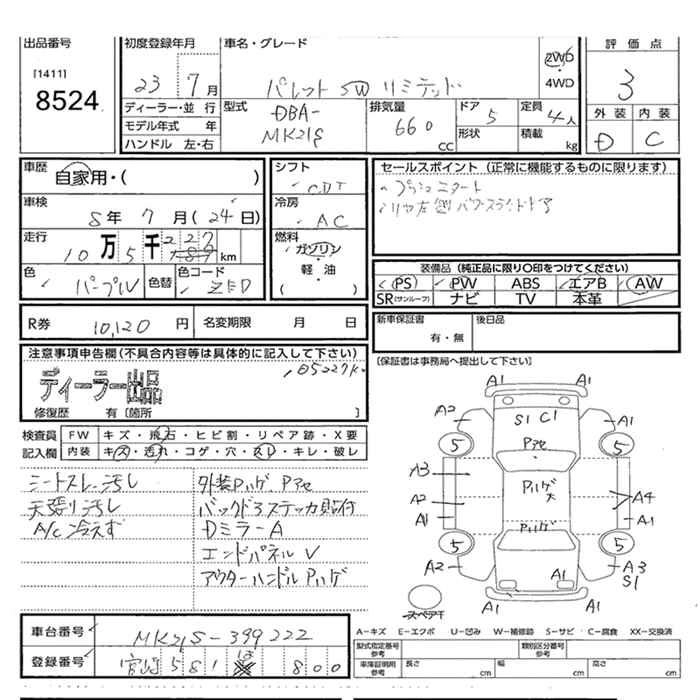 出品番号 初度登録年月 車名・グレード 評価点
[1411]
8524
23 7月 パレット SW リミテッド 2WD 4WD 3
ディーラー・並行 型式 排気量 ドア 定員 外装 内装
モデル年式 年 DBA- MK21S 660 CC 5 形状 4人 積載 kg D C
ハンドル 左・右
車歴 自家用・( ) シフト CDT セールスポイント (正常に機能するものに限ります)
車検 8年 7月(24日) 冷房 AC プッシュスタート
走行 10万5千227 km 燃料 ガソリン・軽油
色 パープル 色替 色コード ZED
装備品 (純正品に限り○印をつけてください)
PS PW ABS エアB AW
SR(サンルーフ) ナビ TV 本革
R券 10,120円 名変期限 月 日 新車保証書 有・無 後日品
[保証書は事務局へ提出して下さい]
注意事項申告欄(不具合内容等は具体的に記入して下さい)
105227K
ディーラー出品
修復歴 有〔箇所 〕
検査員 FW キズ・飛石・ヒビ割・リペア跡・X要
記入欄 内装 キズ・汚れ・コゲ・穴・スレ・キレ・破レ
シートスレ汚し 外装Pハゲ、Pアセ
天張り汚し バックドアステッカ貼付
A/C冷えず DミラーA
エンドパネルV
アウターハンドルPハゲ
A1 A1
A2 S1 C1 A1
5 Pアセ 5
A3 Pハゲ大
A2 A4
A1 Pハゲ A1
5 5
A2 A3 S1
A1 A1
スペア干
車台番号 MK21S-399222
登録番号 宮崎 581 は 800
A-キズ E-エクボ U-凹み W-補修跡 S-サビ C-腐食 XX-交換済
型式指定番号 参考 類別区分番号 参考
車庫証明用 参考 長さ cm 幅 cm 高さ cm